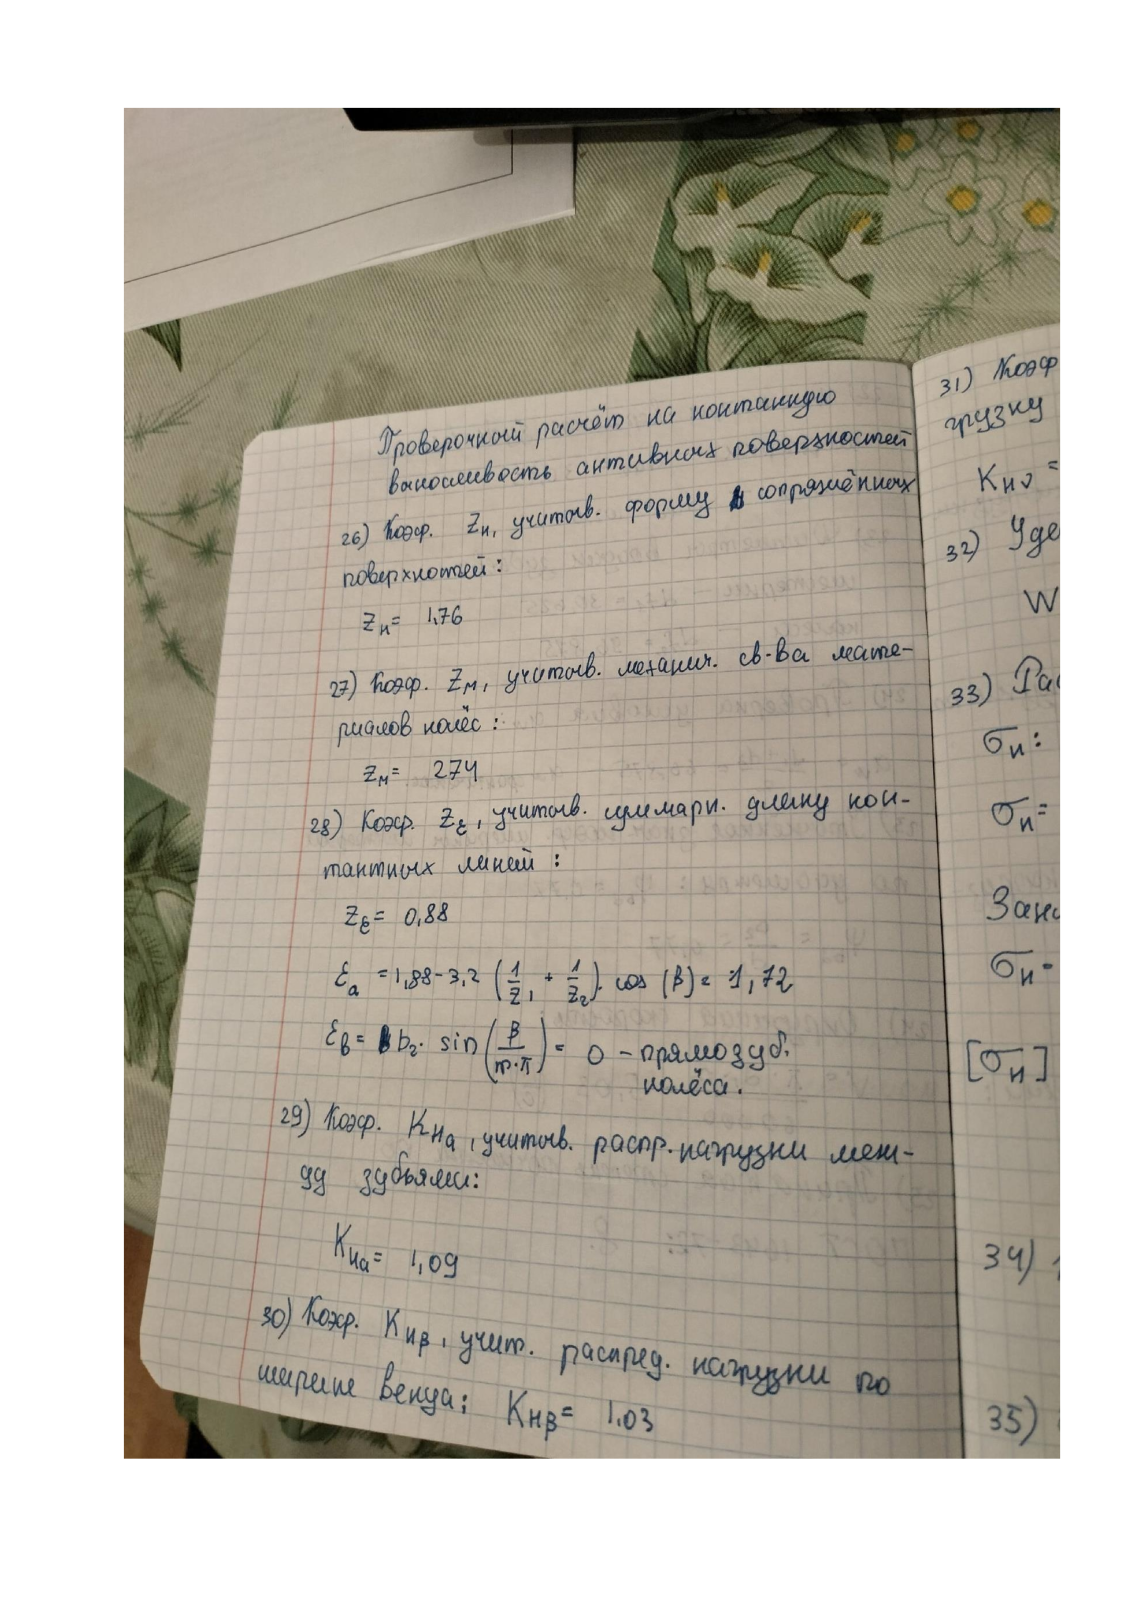 Проверочный расчёт на контактную
выносливость активных поверхностей
26) Коэф. Zн, учитыв. форму сопряжённых
поверхностей:
Zн = 1,76
27) Коэф. Zм, учитыв. механич. св-ва мате-
риалов колёс:
Zм = 274
28) Коэф. Zε, учитыв. суммарн. длину кон-
тактных линий:
Zε = 0,88
εa = 1,88-3,2 (1/Z1 + 1/Z2). cos (β) = 1,72
εβ = b2· sin (β/m·π) = 0 - прямозуб.
колёса.
29) Коэф. Kнa, учитыв. распр. нагрузки меж-
ду зубьями:
Kнa = 1,09
30) Коэф. Kнβ, учит. распред. нагрузки по
ширине венца: Kнβ = 1.03
31) Коэф
грузку
Kнv =
32) Уде
W
33) Рас
σн:
σн=
σн
[σн]
34)
35)